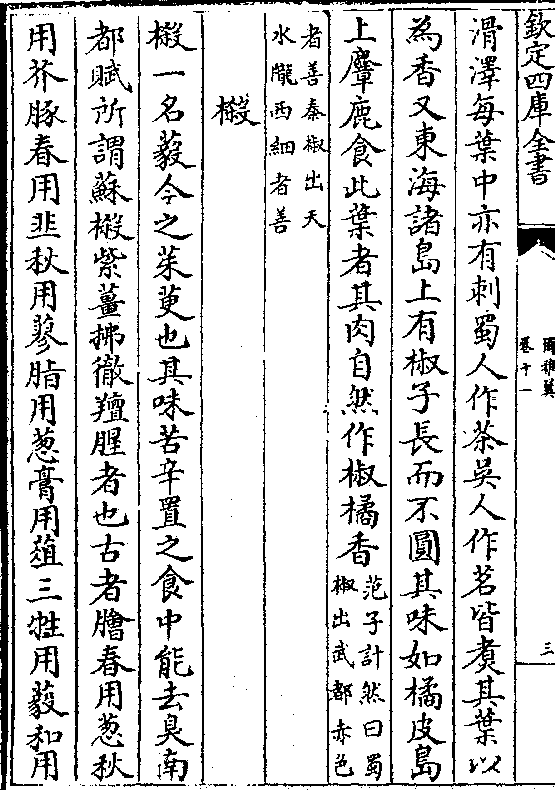 欽定四庫全書
爾雅翼
卷十一
三
滑澤每葉中亦有刺蜀人作茶吳人作茗皆煑其葉以
為香又東海諸島上有椒子長而不圓其味如橘皮島
上麞鹿食此葉者其肉自然作椒橘香
范子計然曰蜀
椒出武都赤色
者善秦椒出天
水隴西細者善
樧
樧一名藙今之茱萸也其味苦辛置之食中能去臭南
都賦所謂蘇樧紫薑拂徹羶腥者也古者膾春用葱秋
用芥豚春用韭秋用蓼脂用葱膏用䪥三牲用藙和用